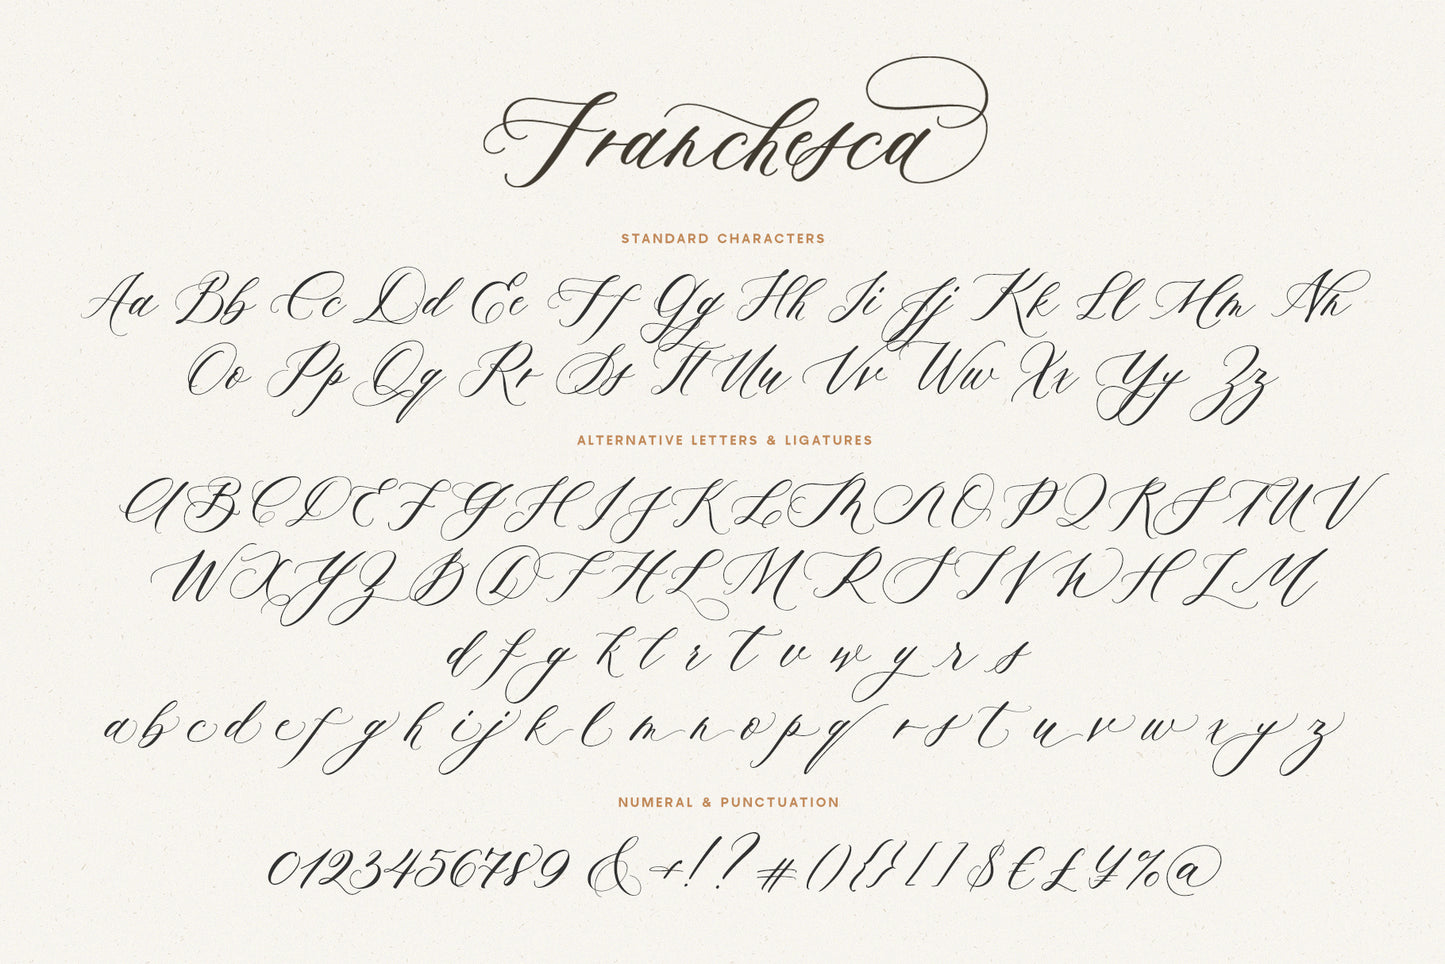 Franchesca
STANDARD CHARACTERS
Aa Bb Cc Dd Ee Ff Gg Hh Ii Jj Kk Ll Mm Nn
Oo Pp Qq Rr Ss Tt Uu Vv Ww Xx Yy Zz
ALTERNATIVE LETTERS & LIGATURES
A B C D E F G H I J K L M N O P Q R S T U V
W X Y Z B D F H L M R S T V W H L M
d f g k l r t v w y r s
a b c d e f g h i j k l m n o p q r s t u v w x y z
NUMERAL & PUNCTUATION
0123456789 & +!?#(){}[]$€£¥%@